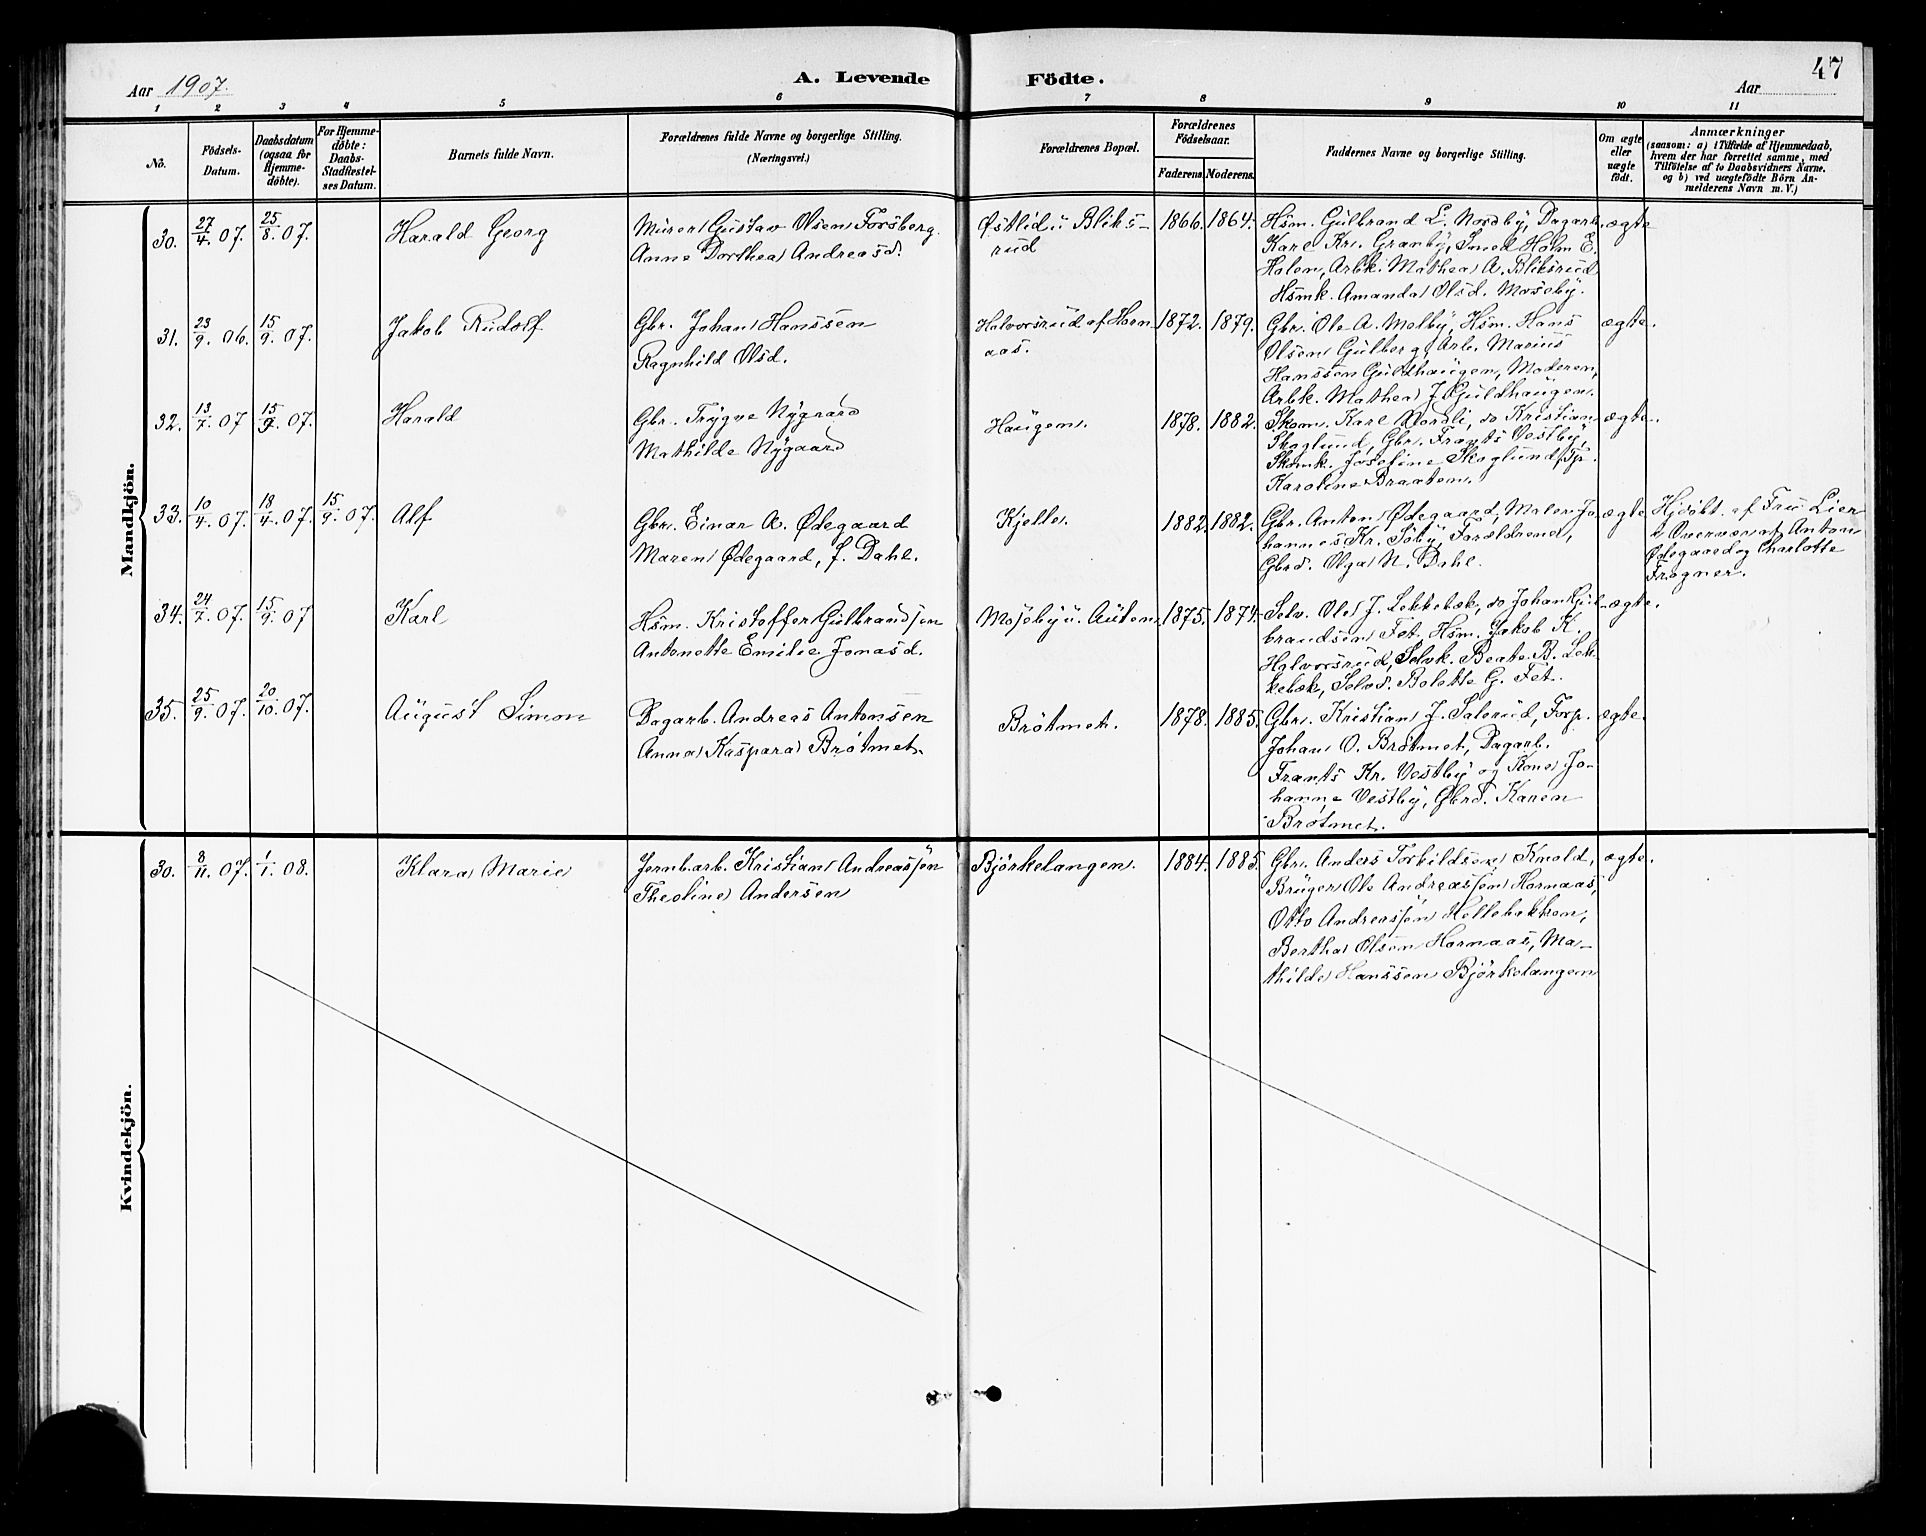 47
Aar 1907.
A. Levende Födte.
Aar
1 2 3 4 5 6 7 8 9 10 11
No.
Födsels-
Datum.
Daabsdatum
(ogsaa for
Hjemme-
döbte).
For Hjemme-
döbte:
Daabs-
Stadfæstel-
ses Datum.
Barnets fulde Navn.
Forældrenes fulde Navne og borgerlige Stilling.
(Næringsvei.)
Forældrenes Bopæl.
Forældrenes
Födselsaar.
Faderens. Moderens.
Faddernes Navne og borgerlige Stilling.
Om ægte
eller
uægte
født.
Anmærkninger
(saasom: a) i Tilfælde af Hjemmedaab,
hvem der har forrettet samme, med
Tilföielse af to Daabsvidners Navne.
og b) ved uægtefödte Börn An-
melderens Navn m. V.)
Mandkjön.
30. 27/4. 07. 25/8. 07.
Harald Georg
Murer Gustav Olsen Forsberg
Anne Dorthea Andreasd.
Østlid u Bliks-
rud
1866. 1864.
Hsm. Gulbrand L. Nordby, Dagarb.
Karl Kr. Granby, Smed Holm E.
Holen, Arbk. Mathea A. Bliksrud
Hsmk. Amanda Olsd. Moseby.
ægte
31. 23/9. 06. 15/9. 07.
Jakob Rudolf
Gbr. Johan Hanssen
Ragnhild Olsd.
Halvorsrud af Horn-
aas.
1872. 1879.
Gbr. Ole A. Melby, Hsm. Hans
Olsen Gulberg, Arb. Marius
Hanssen Guldhaugen, Moderen,
Arbk. Mathea J. Guldhaugen.
ægte.
32. 13/7. 07 15/9. 07.
Harald
Gbr. Trygve Nygaard
Mathilde Nygaard
Haugen.
1878. 1882.
Skom. Karl Nordli, do Kristian
Skoglund, Gbr. Frants Vestby,
Skomk. Josefine Skoglund, Tp.
Karoline Braaten.
ægte.
33. 10/4. 07. 18/4. 07. 15/9. 07.
Alf
Gbr. Einar A. Ødegaard
Maren Ødegaard, f. Dahl.
Kjelle.
1882. 1882.
Gbr. Anton Ødegaard, Maler Jo-
hannes Kr. Søby, Forældrene,
Gbrd. Olga N. Dahl.
ægte
Hjdöbt af Fru Lier
i Overvær af Anton
Ødegaard og Charlotte
Frogner.
34. 24/7. 07. 15/9. 07
Karl
Hsm. Kristoffer Gulbrandsen
Antonette Emilie Jonasd.
Moseby u. Auten.
1875. 1874.
Selv. Ole J. Lekkebæk, do Johan Gul-
brandsen Fet, Hsm. Jakob K.
Halvorsrud, Selvk. Beate B. Lek-
kebæk, Selvd. Bolette G. Fet.
ægte.
35. 25/9. 07. 20/10. 07.
August Simon
Dagarb. Andreas Antonsen
Anna Kaspara Brøtmet.
Brøtmet.
1878. 1885.
Gbr. Kristian J. Salerud, Forp.
Johan O. Brøtmet, Dagarb.
Frants Kr. Vestby og Kone Jo-
hanne Vestby, Gbrd. Karen
Brøtmet.
ægte.
Kvindekjön.
30. 8/11. 07. 1/1. 08.
Klara Marie
Jernbarb. Kristian Andreassen
Theoline Andersen
Bjørkelangen.
1884. 1885.
Gbr. Anders Torkildsen Knold,
Bruger Ole Andreassen Hornaas,
Otto Andreassen Hellebekken,
Bertha Olsen Hornaas, Ma-
thilde Hanssen Bjørkelangen
ægte.